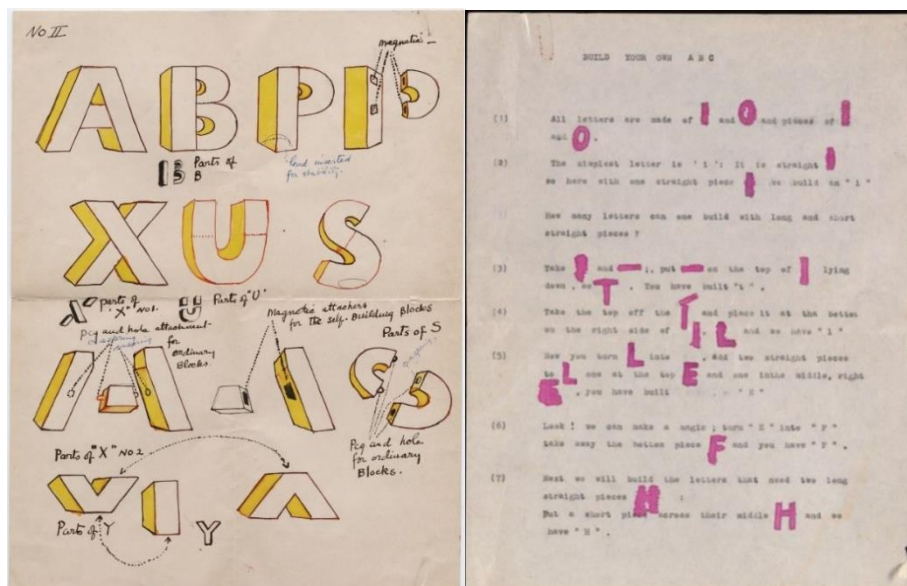 No II
magnetic
A B P I D
Parts of
B
lead inserted
for stability.
X U S
parts of
"X" No 1.
Parts of "U"
Magnetic attachers
for the self-Building Blocks
Peg and hole attachment
for
ordinary
Blocks.
Parts of S
Peg and hole
for ordinary
Blocks.
Parts of "X" No 2
Parts of Y
Y
BUILD YOUR OWN A B C
(1) All letters are made of I and O and pieces of I
and O.
(2) The simplest letter is 'i': It is straight I
so here with one straight piece I we build an "i"
How many letters can one build with long and short
straight pieces ?
(3) Take I and — ;, put — on the top of I lying
down, so T. You have built "t".
(4) Take the top off the T and place it at the bottom
on the right side of I. L and we have "l"
(5) Now you turn L into E. Add two straight pieces
to L one at the top E and one in the middle, right
E, you have built "E"
(6) Look! we can make a magic; turn "E" into "F"
take away the bottom piece F and you have "F".
(7) Next we will build the letters that need two long
straight pieces H :
Put a short piece across their middle H and we
have "H".